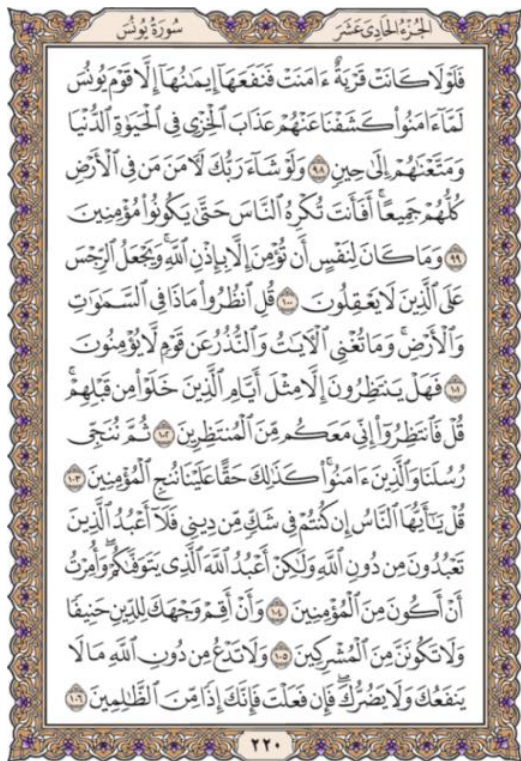 الجزء الحادى عشر
سورة يونس
فَلَوْلَا كَانَتْ قَرْيَةٌ ءَامَنَتْ فَنَفَعَهَآ إِيمَـٰنُهَآ إِلَّا قَوْمَ يُونُسَ
لَمَّآ ءَامَنُوا۟ كَشَفْنَا عَنْهُمْ عَذَابَ ٱلْخِزْىِ فِى ٱلْحَيَوٰةِ ٱلدُّنْيَا
وَمَتَّعْنَـٰهُمْ إِلَىٰ حِينٍ ٩٨ وَلَوْ شَآءَ رَبُّكَ لَـَٔامَنَ مَن فِى ٱلْأَرْضِ
كُلُّهُمْ جَمِيعًا ۚ أَفَأَنتَ تُكْرِهُ ٱلنَّاسَ حَتَّىٰ يَكُونُوا۟ مُؤْمِنِينَ
٩٩ وَمَا كَانَ لِنَفْسٍ أَن تُؤْمِنَ إِلَّا بِإِذْنِ ٱللَّهِ ۚ وَيَجْعَلُ ٱلرِّجْسَ
عَلَى ٱلَّذِينَ لَا يَعْقِلُونَ ١٠٠ قُلِ ٱنظُرُوا۟ مَاذَا فِى ٱلسَّمَـٰوَٰتِ
وَٱلْأَرْضِ ۚ وَمَا تُغْنِى ٱلْـَٔايَـٰتُ وَٱلنُّذُرُ عَن قَوْمٍ لَّا يُؤْمِنُونَ
١٠١ فَهَلْ يَنتَظِرُونَ إِلَّا مِثْلَ أَيَّامِ ٱلَّذِينَ خَلَوْا۟ مِن قَبْلِهِمْ ۚ
قُلْ فَٱنتَظِرُوٓا۟ إِنِّى مَعَكُم مِّنَ ٱلْمُنتَظِرِينَ ١٠٢ ثُمَّ نُنَجِّى
رُسُلَنَا وَٱلَّذِينَ ءَامَنُوا۟ ۚ كَذَٰلِكَ حَقًّا عَلَيْنَا نُنجِ ٱلْمُؤْمِنِينَ ١٠٣
قُلْ يَـٰٓأَيُّهَا ٱلنَّاسُ إِن كُنتُمْ فِى شَكٍّ مِّن دِينِى فَلَآ أَعْبُدُ ٱلَّذِينَ
تَعْبُدُونَ مِن دُونِ ٱللَّهِ وَلَـٰكِنْ أَعْبُدُ ٱللَّهَ ٱلَّذِى يَتَوَفَّىٰكُمْ ۖ وَأُمِرْتُ
أَنْ أَكُونَ مِنَ ٱلْمُؤْمِنِينَ ١٠٤ وَأَنْ أَقِمْ وَجْهَكَ لِلدِّينِ حَنِيفًا
وَلَا تَكُونَنَّ مِنَ ٱلْمُشْرِكِينَ ١٠٥ وَلَا تَدْعُ مِن دُونِ ٱللَّهِ مَا لَا
يَنفَعُكَ وَلَا يَضُرُّكَ ۖ فَإِن فَعَلْتَ فَإِنَّكَ إِذًا مِّنَ ٱلظَّـٰلِمِينَ ١٠٦
٢٢٠